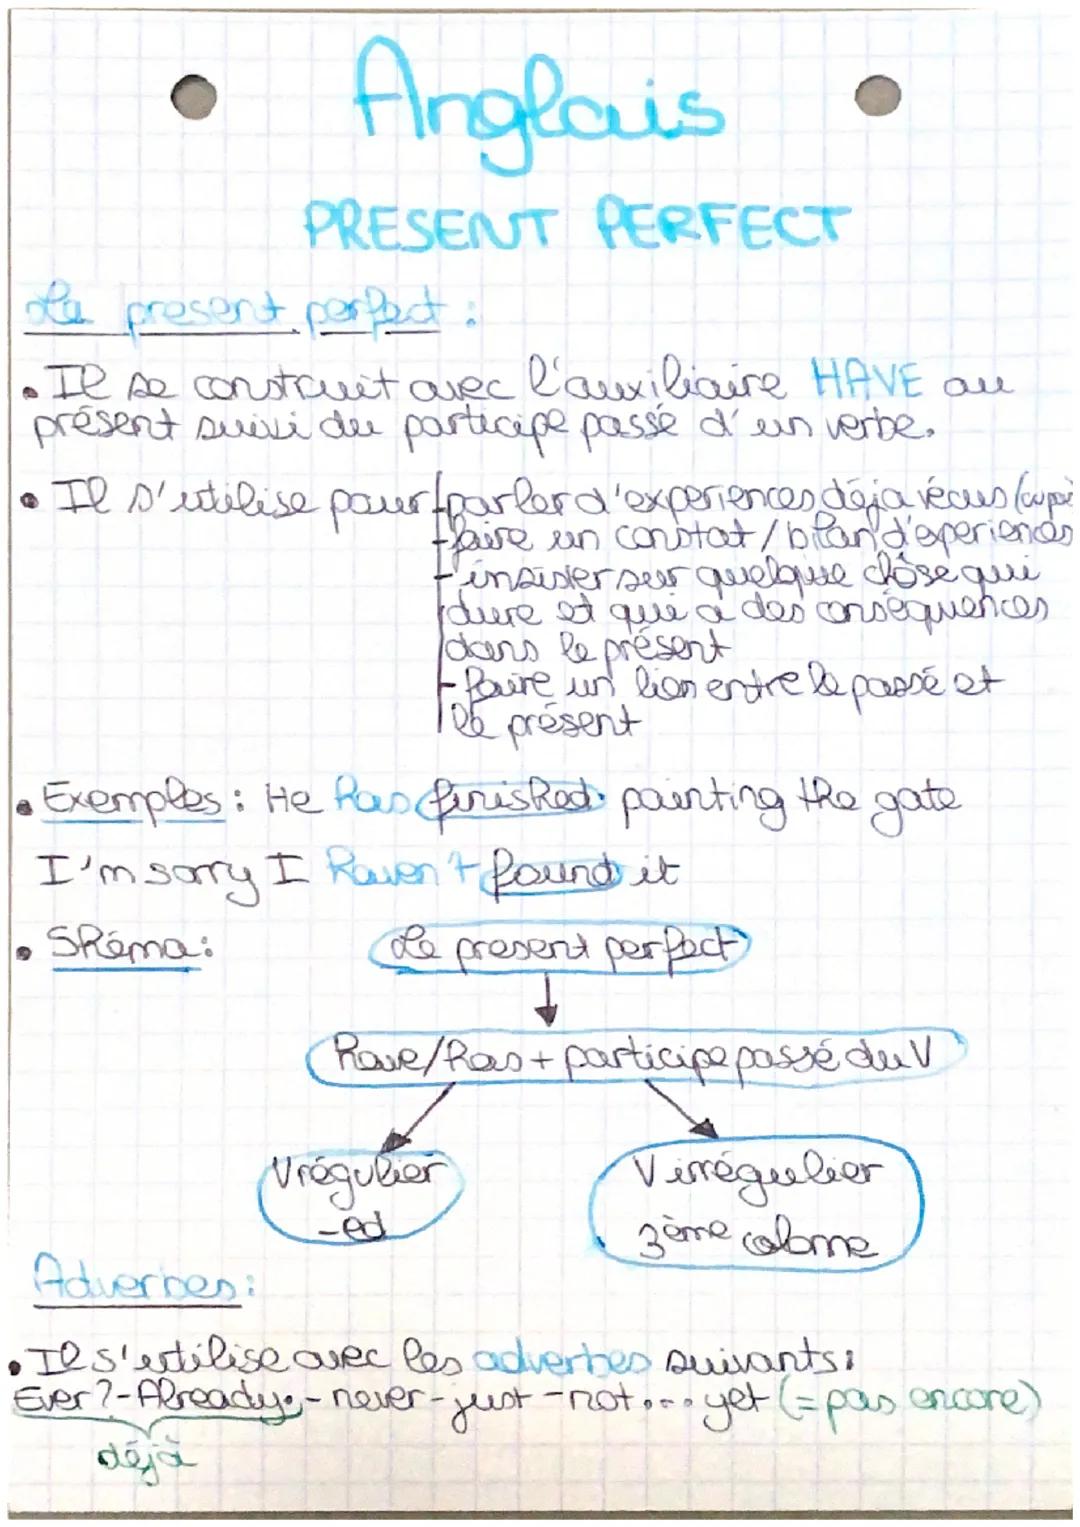 Anglais
PRESENT PERFECT
Le present perfect :
• Il se construit avec l'auxiliaire HAVE au
présent suivi du participe passé d'un verbe.
• Il s'utilise pour - parler d'experiences déja vécus
- faire un constat / bilan d'experiences
- insister sur quelque chôse qui
dure et qui a des conséquences
dans le présent
- faire un lien entre le passé et
le présent
• Exemples : He has finished painting the gate
I'm sorry I haven't found it
• Shéma :
Le present perfect
have/has + participe passé du V
V régulier
-ed
V irrégulier
3ème colonne
Adverbes :
• Il s'utilise avec les adverbes suivants :
Ever ? - Already. - never - just - not .... yet (= pas encore)
déjà